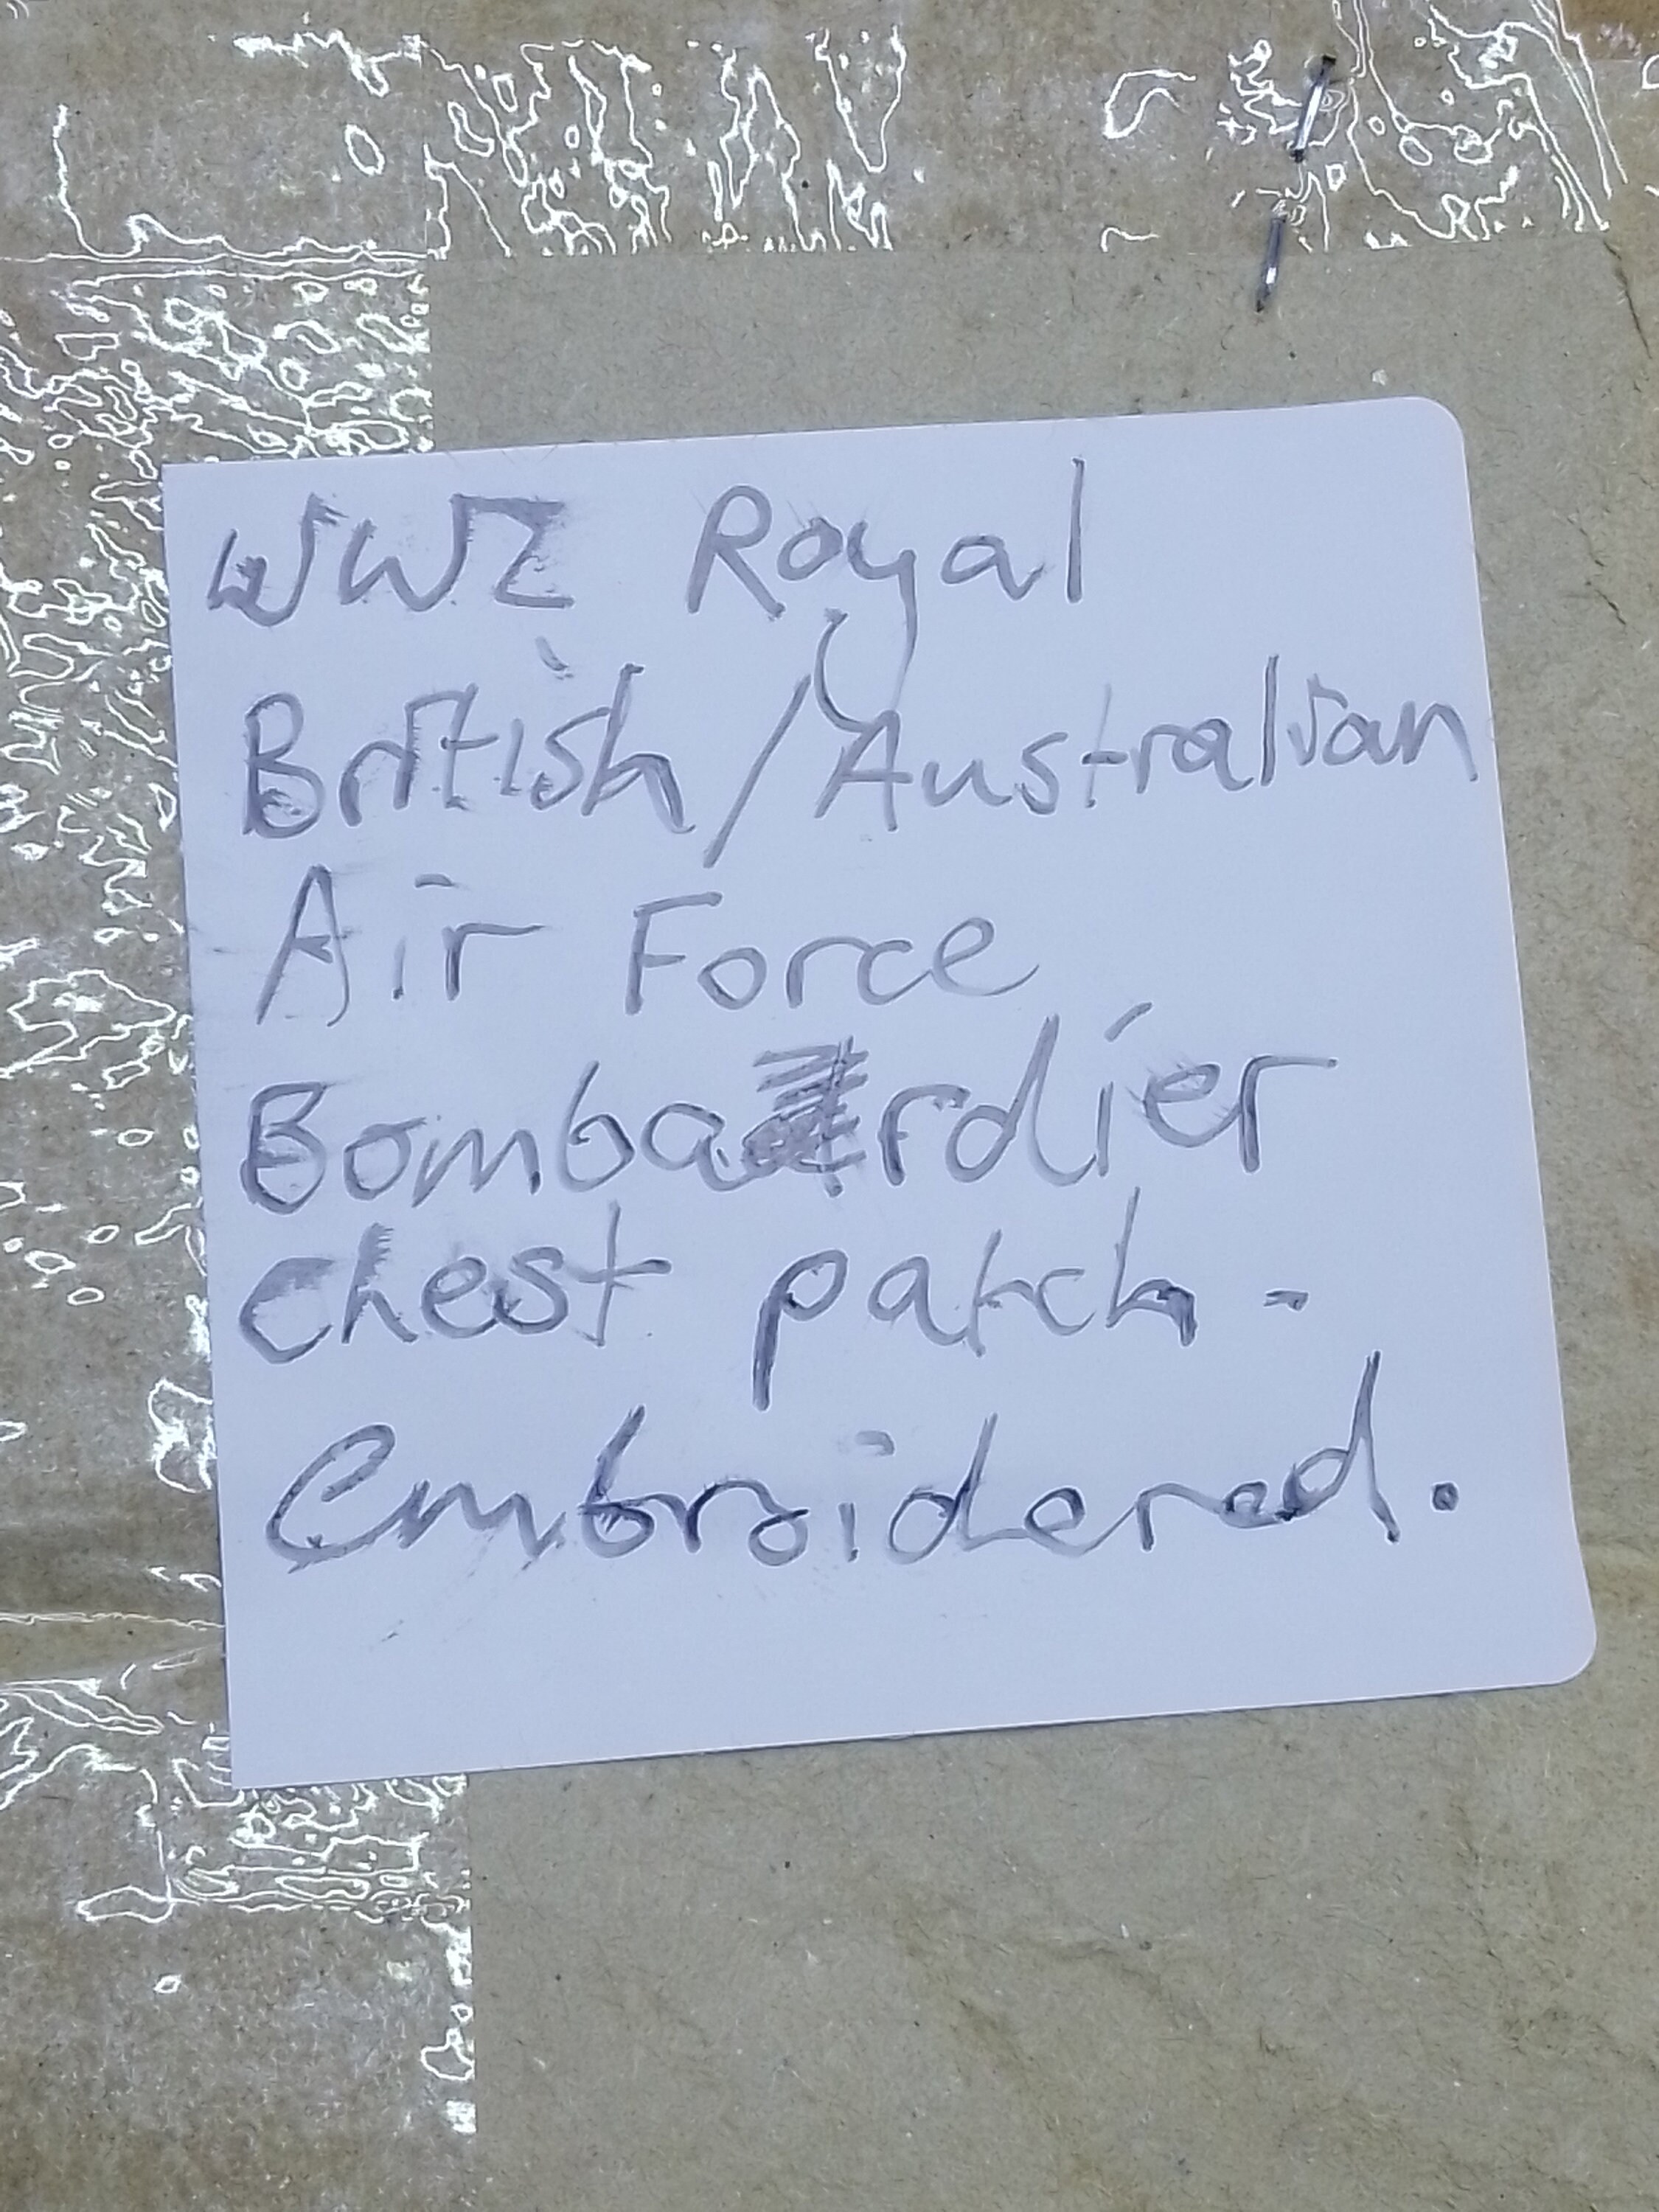 WW2 Royal
British/Australian
Air Force
Bombardier
chest patch -
Embroidered.